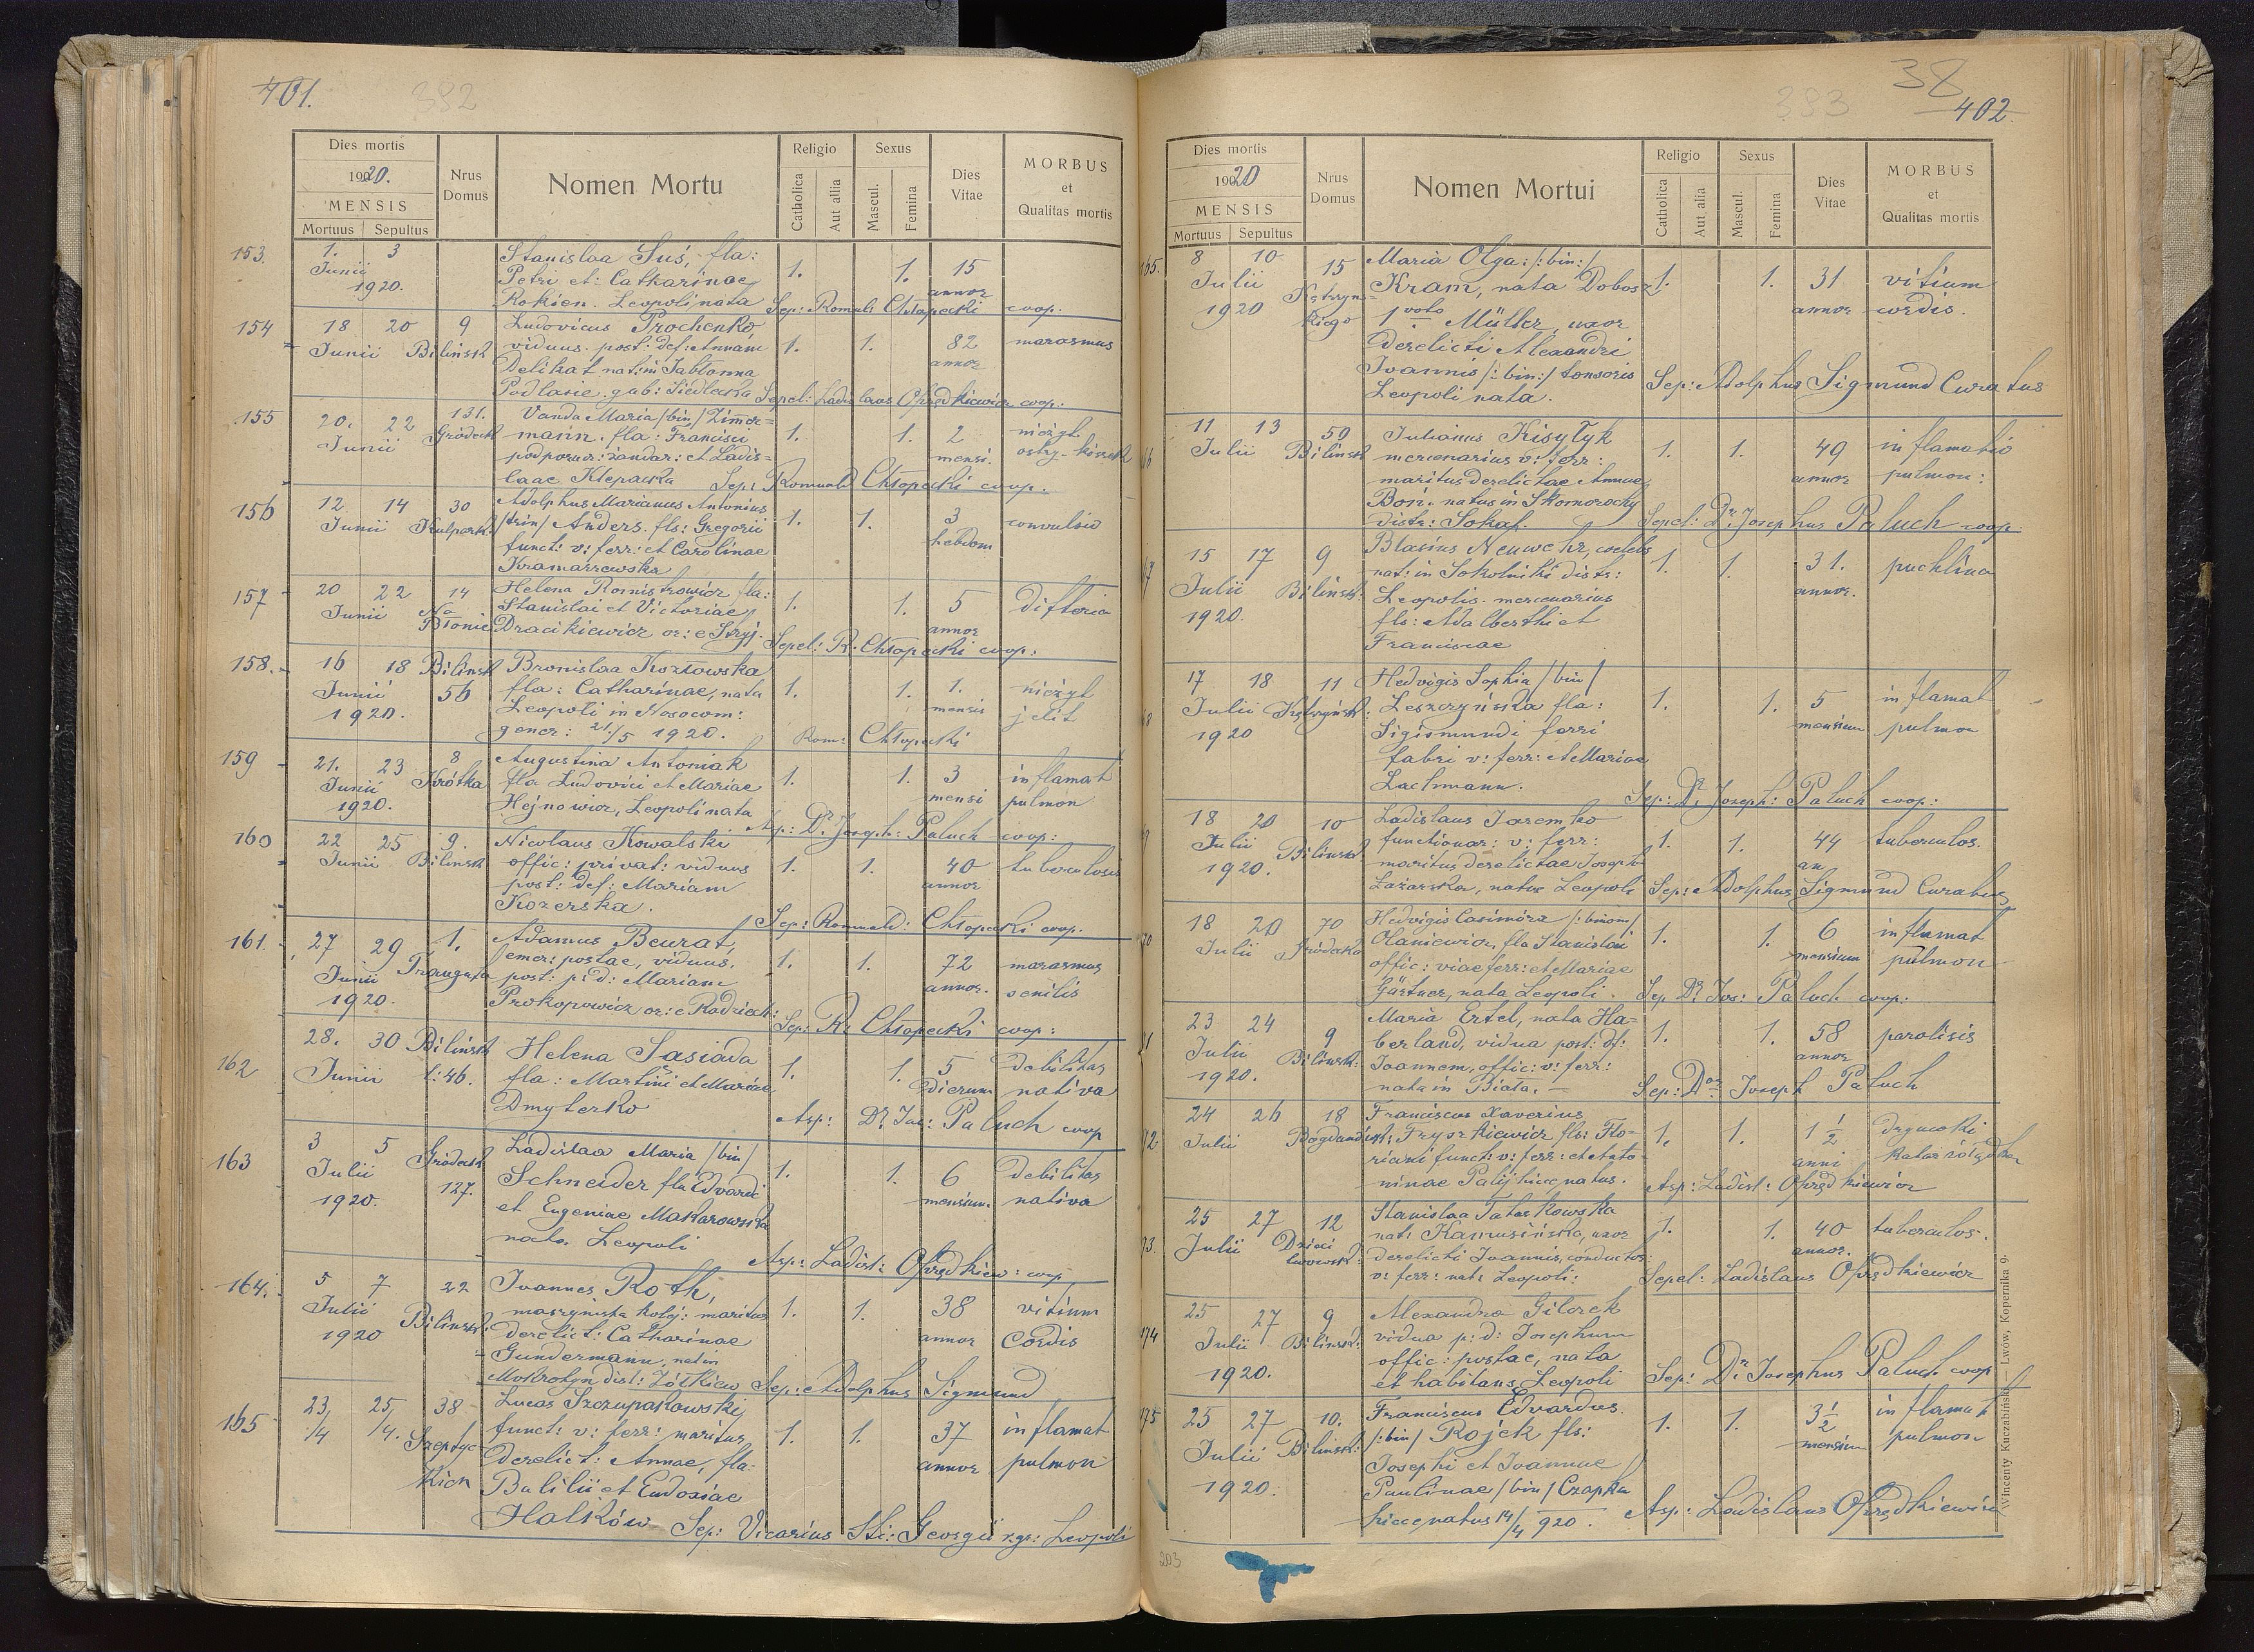 401.
382
Dies mortis
1920.
MENSIS
Mortuus Sepultus
Nrus Domus
Nomen Mortu
Religio
Catholica
Aut alia
Sexus
Mascul.
Femina
Dies Vitae
MORBUS
et
Qualitas mortis
153. 1. 3 Stanislaa Suś, fla:
Junii Petri et Catharinae 1. 1. 15
1920. Rokien. Leopoli nata annor
Sep: Romuli Chłopecki coop.
154 18 20 9 Ludovicus Prochenko
Junii Bilińsk viduus post: def: Annam 1. 1. 82 marasmus
Delikat nat: in Jabłonna annor
Podlasie gub: Siedlecka Sepel: Ladislaus Oprędkiewicz coop.
155 20. 22 131. Vanda Maria /bin/ Zimer=
Junii Gródeck mann. fla: Francisci 1. 1. 2 nieżyt
podporucz: żandar: et Ladis= mensi. ostry kiszek
laae Klepacka Sep: Romuald Chłopecki coop.
156 12 14 30 Adolphus Marianus Antonius
Junii Kulpark. /trin/ Anders. fls: Gregorii 1. 1. 3 convulsio
funct: v: ferr: et Carolinae hebdom
Kramarzewska
157 20 22 14 Helena Romistrowicz fla:
Junii Na Błonie Stanislai et Victoriae 1. 1. 5 difteria
Dracikiewicz or: e Stryj. annor
Sepel: R. Chłopecki coop:
158. 16 18 Bilińsk Bronislaa Kozłowska
Junii 56 fla: Catharinae, nata 1. 1. 1. nieżyt
1920. Leopoli in Nosocom: mensis jelit
gener: 21/5 1920. Rom: Chłopecki
159 21. 23 8 Augustina Antoniak
Junii Krótka fla Ludovici et Mariae 1. 1. 3 inflamat
1920. Hejnowicz, Leopoli nata mensi pulmon
Asp: Dr. Joseph: Paluch coop:
160 22 25 9. Nicolaus Kowalski
Junii Bilinsk offic: privat: viduus 1. 1. 40 tuberculosis
post: def: Mariam annor
Kozerska.
Sep: Romuald: Chłopecki coop.
161. 27 29 1. Adamus Beurat,
Junii Traugutta emer: postae, viduus. 1. 1. 72 marasmus
1920. post: p: d: Mariam annor. senilis
Prokopowicz or: e Radziech:
Sep: R: Chłopecki coop:
162 28. 30 Bilińsk Helena Sasiada
Junii l: 46. fla: Martini et Mariae 1. 1. 5 debilitas
Dmyterko dierum nativa
Asp: Dr. Jos: Paluch coop
163 3 5 Gródeck Ladislaa Maria /bin/
Julii 127. Schneider fla Edvardi 1. 1. 6 debilitas
1920. et Eugeniae Makarowska mensium nativa
nata Leopoli
Asp: Ladisl: Oprędkiew: coop
164. 5 7 22 Ivannes Roth,
Julii Bilińsk. maszynista kolej: maritus 1. 1. 38 vitium
1920 derelict: Catharinae annor cordis
Gundermann, nat in
Mokrotyn dist: Żółkiew Sep: Adolphus Sigmund
165 23/4 25/4. 38 Lucas Szczupakowski
Szeptyckich funct: v: ferr: maritus 1. 1. 37 inflamat
derelict: Annae, fla: annor pulmon
Basilii et Eudoxiae
Halków Sep: Vicarius Sti: Georgii r.gr: Leopoli
38
383
402
Dies mortis
1920
MENSIS
Mortuus Sepultus
Nrus Domus
Nomen Mortui
Religio
Catholica
Aut alia
Sexus
Mascul.
Femina
Dies Vitae
MORBUS
et
Qualitas mortis
165. 8 10 15 Maria Olga: /:bin:/
Julii Kram, nata Dobosz 1. 1. 31 vitium
1920 1 voto Müller, uxor annor cordis.
derelicti Alexandri
Ivannis /:bin:/ tonsoris
Leopoli nata. Sep: Adolphus Sigmund Curatus
11 13 50 Julianus Kisyłyk
Julii Bilińsk mercenarius v: ferr: 1. 1. 49 inflamatio
maritus derelictae Annae annor pulmon:
Boń. natus in Skomorochy
distr: Sokal. Sepel: Dr. Josephus Paluch coop:
15 17 9 Blasius Neuwehr, coelebs
Julii Bilińsk: nat: in Sokolniki distr: 1. 1. 31. puchlina
1920. Leopolis. mercenarius annor.
fls: Adalberthi et
Franciscae
17 18 11 Hedvigis Sophia /bin/
Julii Kętrzyńsk: Leszczyńska fla: 1. 1. 5 inflamat
1920 Sigismundi ferri mensium pulmon
fabri v: ferr: et Mariae
Lachmann. Sep: Dr. Joseph: Paluch coop:
18 20 10 Ladislaus Jaremko
Julii Bilińsk. functionar: v: ferr: 1. 1. 44 tuberculos.
1920. maritus derelictae Joseph an
natus Leopoli Sep: Adolphus Sigmund Curatus
18 20 70 Hedvigis Casimira /:binom/
Julii Gródecka Olaniewicz, fla Stanislai 1. 1. 6 inflamat
offic: viae ferr: et Mariae mensium pulmon
Gärtner, nata Leopoli. Sep. Dr. Jos: Paluch coop:
23 24 9 Maria Ertel, nata Ha=
Julii Bilińsk: berland, vidua post: df: 1. 1. 58 paralisis
1920. Joannem, offic: v: ferr: annor
nata in Biała. Sep: Dor. Joseph Paluch
24 26 18 Franciscus Xaverius
Julii Bogdanówk: Fryszkiewicz fls: Flo= 1. 1. 1 1/2 drgawki
riani funct: v: ferr: et Anto= anni
ninae Palij hicce natus. Asp: Ladisl: Oprędkiewicz
25 27 12 Stanislaa Tatarkowska
Julii Dzieci lwowsk: nat: Kamusińska, uxor 1. 1. 40 tuberculos.
73. derelicti Ivannis, conductor: annor.
v: ferr: nat: Leopoli: Sepel: Ladislaus Oprędkiewicz
25 27 9 Alexandra Gilczek
174 Julii Bilińsk: vidua p: d: Josephum
1920. offic: postae, nata
et habitans Leopoli Sep: Dr. Josephus Paluch coop
175 25 27 10. Franciscus Edvardus
Julii Bilińsk: /:bin/ Rojek fls: 1. 1. 3 1/2 inflamat
1920. Josephi et Joannae mensium pulmon
Paulinae /bin/ Czapka
hicce natus 14/4 920. Asp: Ladislaus Oprędkiewicz
Wincenty Kuczabiński, Lwów, Kopernika 9.
203